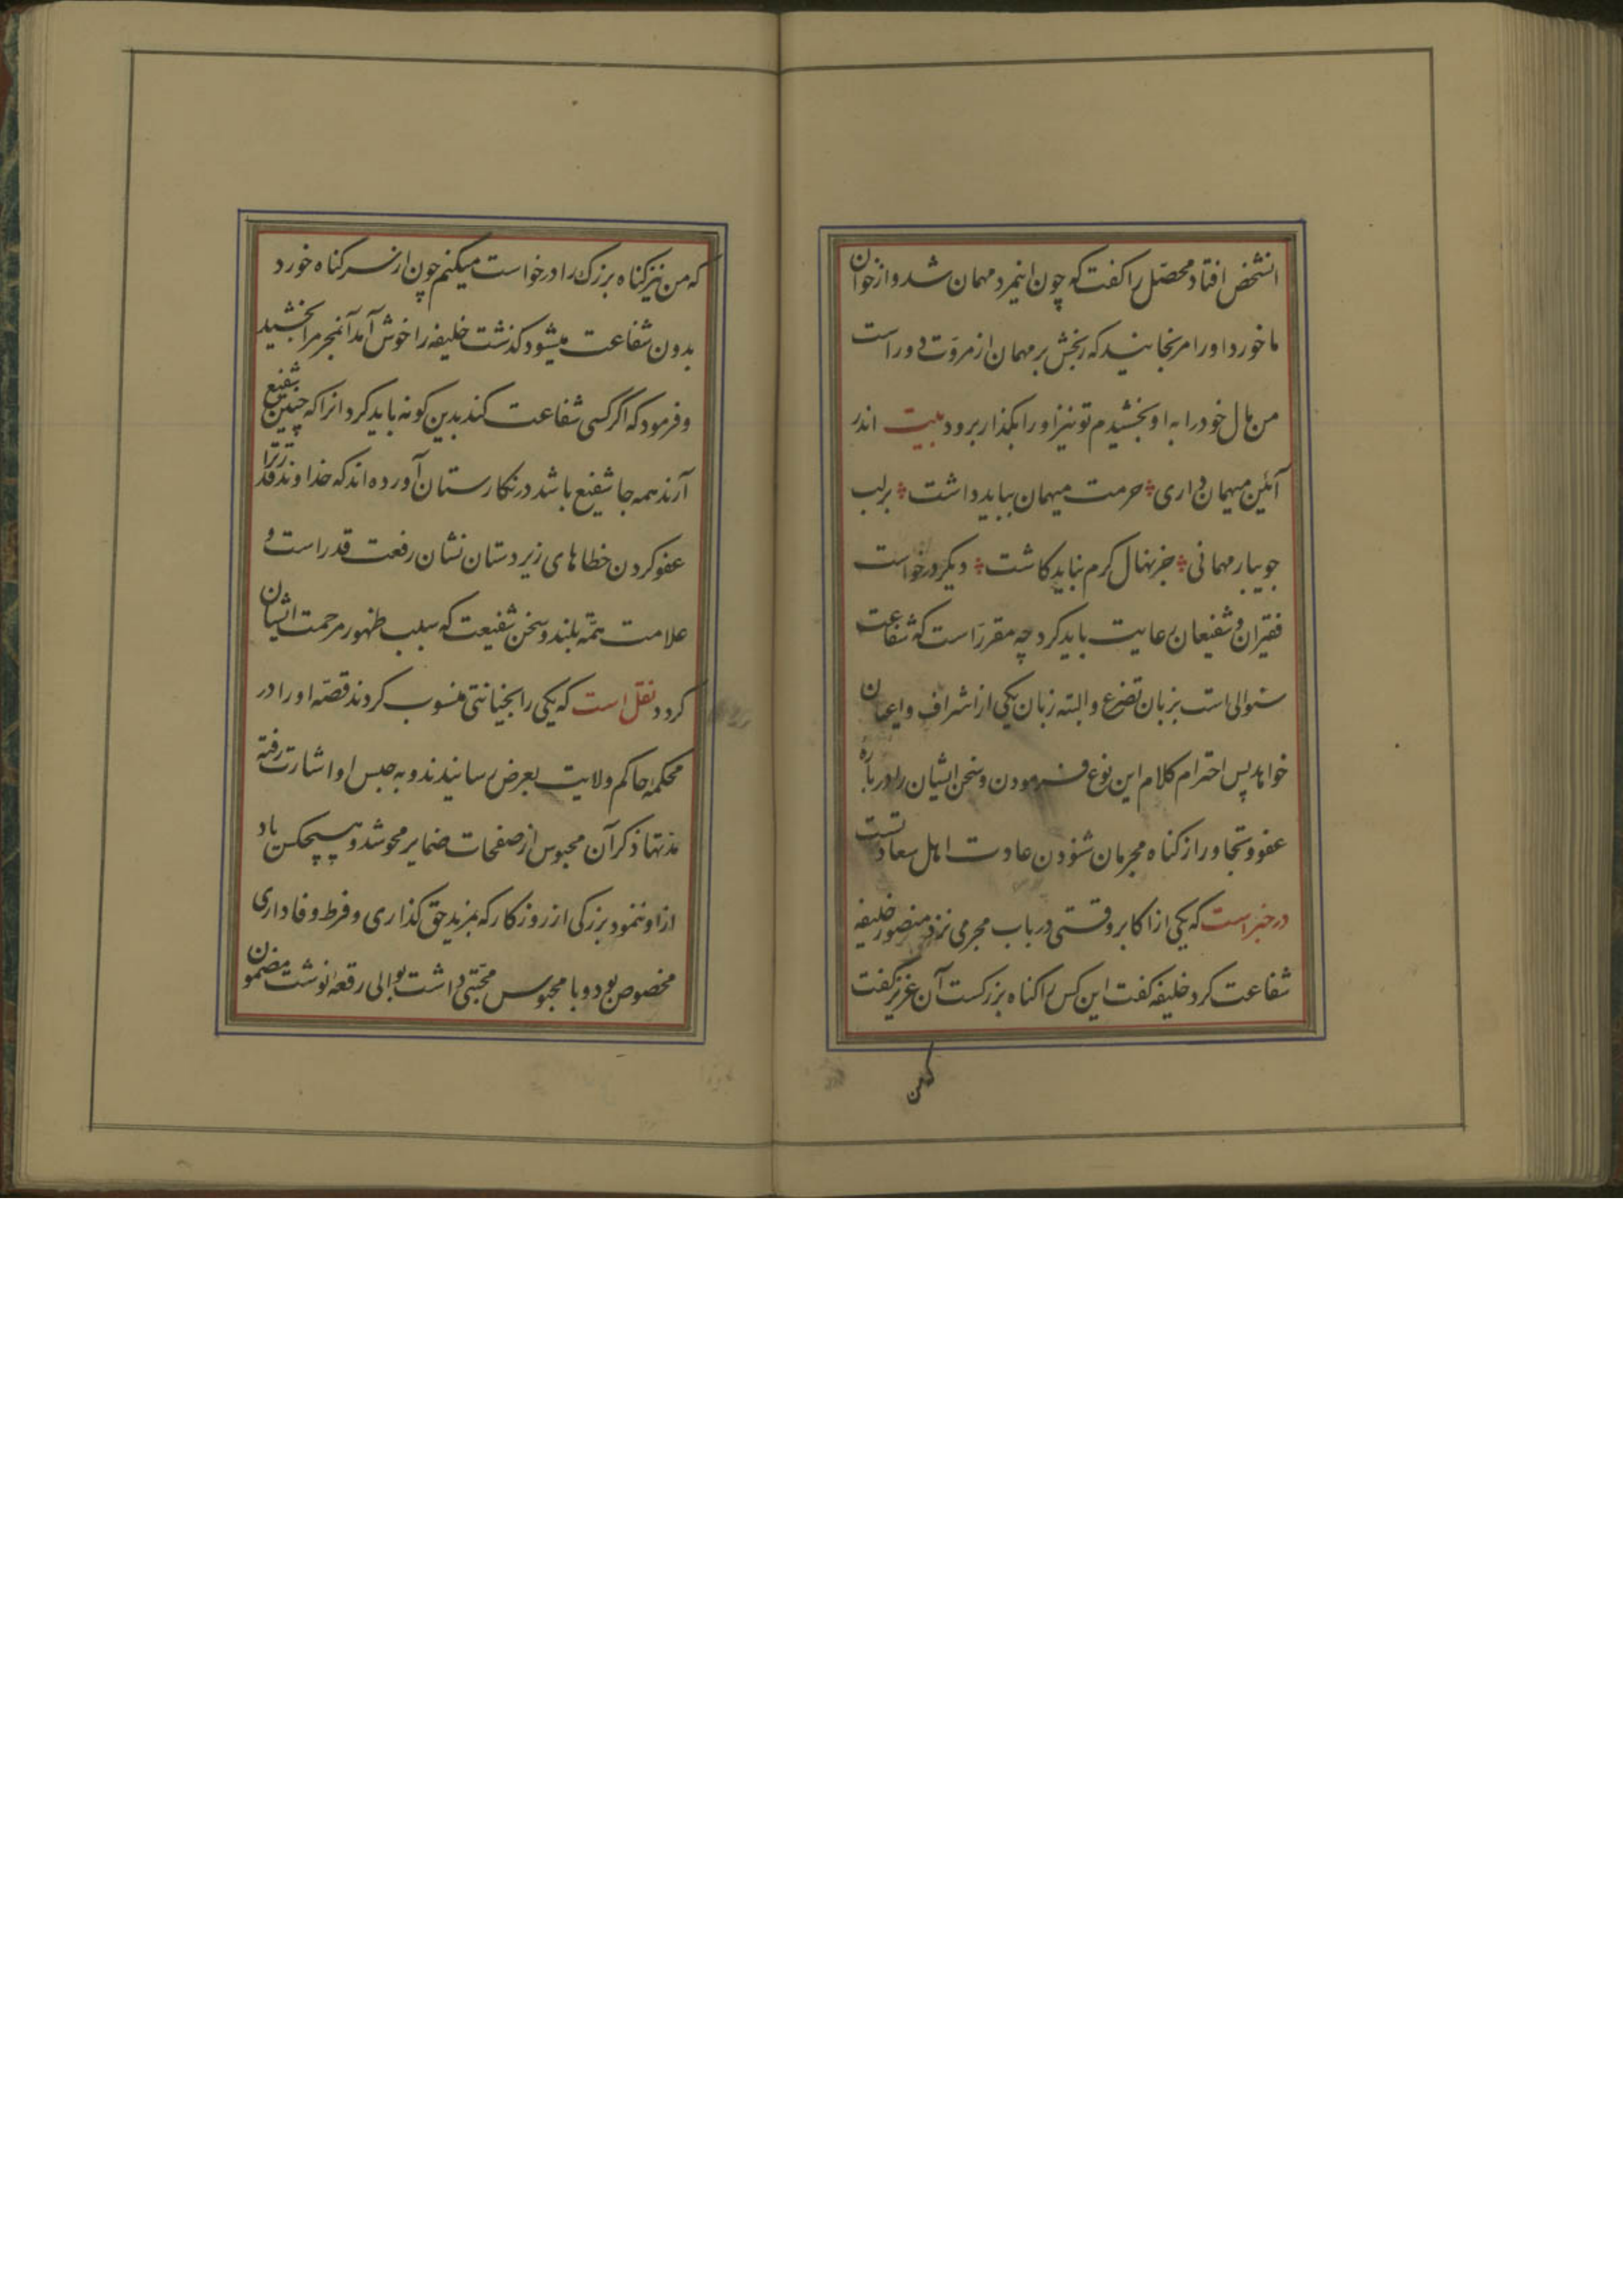 انشخص افتاد محصّل را کفت که چون اینمرد مهمان شد و از خوان
ما خورد او را مرنجانید که رنجش بر مهمان از مروّت دور است
من مال خود را به او بخشیدم تو نیز او را بکذار برود بیت اندر
آئین میهمان داری حرمت میهمان بباید داشت برلب
جویبار مهمانی جز نهال کرم نباید کاشت دیکر درخواست
فقیران و شفیعان رعایت باید کرد چه مقرر است که شفاعت
سئوالی است بزبان تضرع و البته زبان یکی از اشراف و اعیان
خواهد پس احترام کلام این نوع فرمودن و سخن ایشان را در بارهٔ
عفو و تجاوز از کناه مجرمان شنودن عادت اهل سعادتست
در خبر است که یکی از اکابر وقتی در باب مجرمی نزد منصور خلیفه
شفاعت کرد خلیفه کفت این کس را کناه بزرکست آن عزیز کفت
که من
که من نیز کناه بزرک را درخواست میکنم چون از سر کناه خورد
بدون شفاعت میشود کذشت خلیفه را خوش آمد آنمجرم را بخشید
و فرمود که اکر کسی شفاعت کند بدین کونه باید کرد انرا که چنین شفیع
آرند همه جا شفیع باشد در نکارستان آورده اند که خداوند قدرترا
عفو کردن خطاهای زیردستان نشان رفعت قدر است و
علامت همّة بلند و سخن شفیعت که سبب ظهور مرحمت ایشان
کردد نقل است که یکی را بخیانتی منسوب کردند قصّه او را در
محکمهٔ حاکم ولایت بعرض رسانیدند و به حبس او اشارت رفته
مدتها ذکر آن محبوس از صفحات ضمایر محو شد و هیچکس یاد
از او ننمود بزرکی از روزکار که بمزید حق کذاری و فرط وفاداری
مخصوص بود و با محبوس محبّتی داشت بوالی رقعهٔ نوشت مضمون